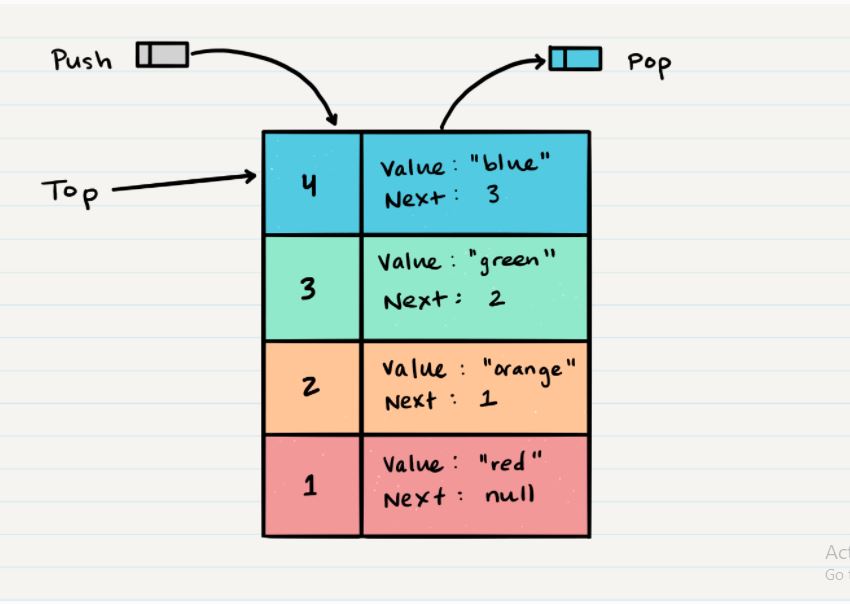 Push
Pop
Top
4
Value : "blue"
Next : 3
3
Value : "green"
Next : 2
2
Value : "orange"
Next : 1
1
Value : "red"
Next : null
Go